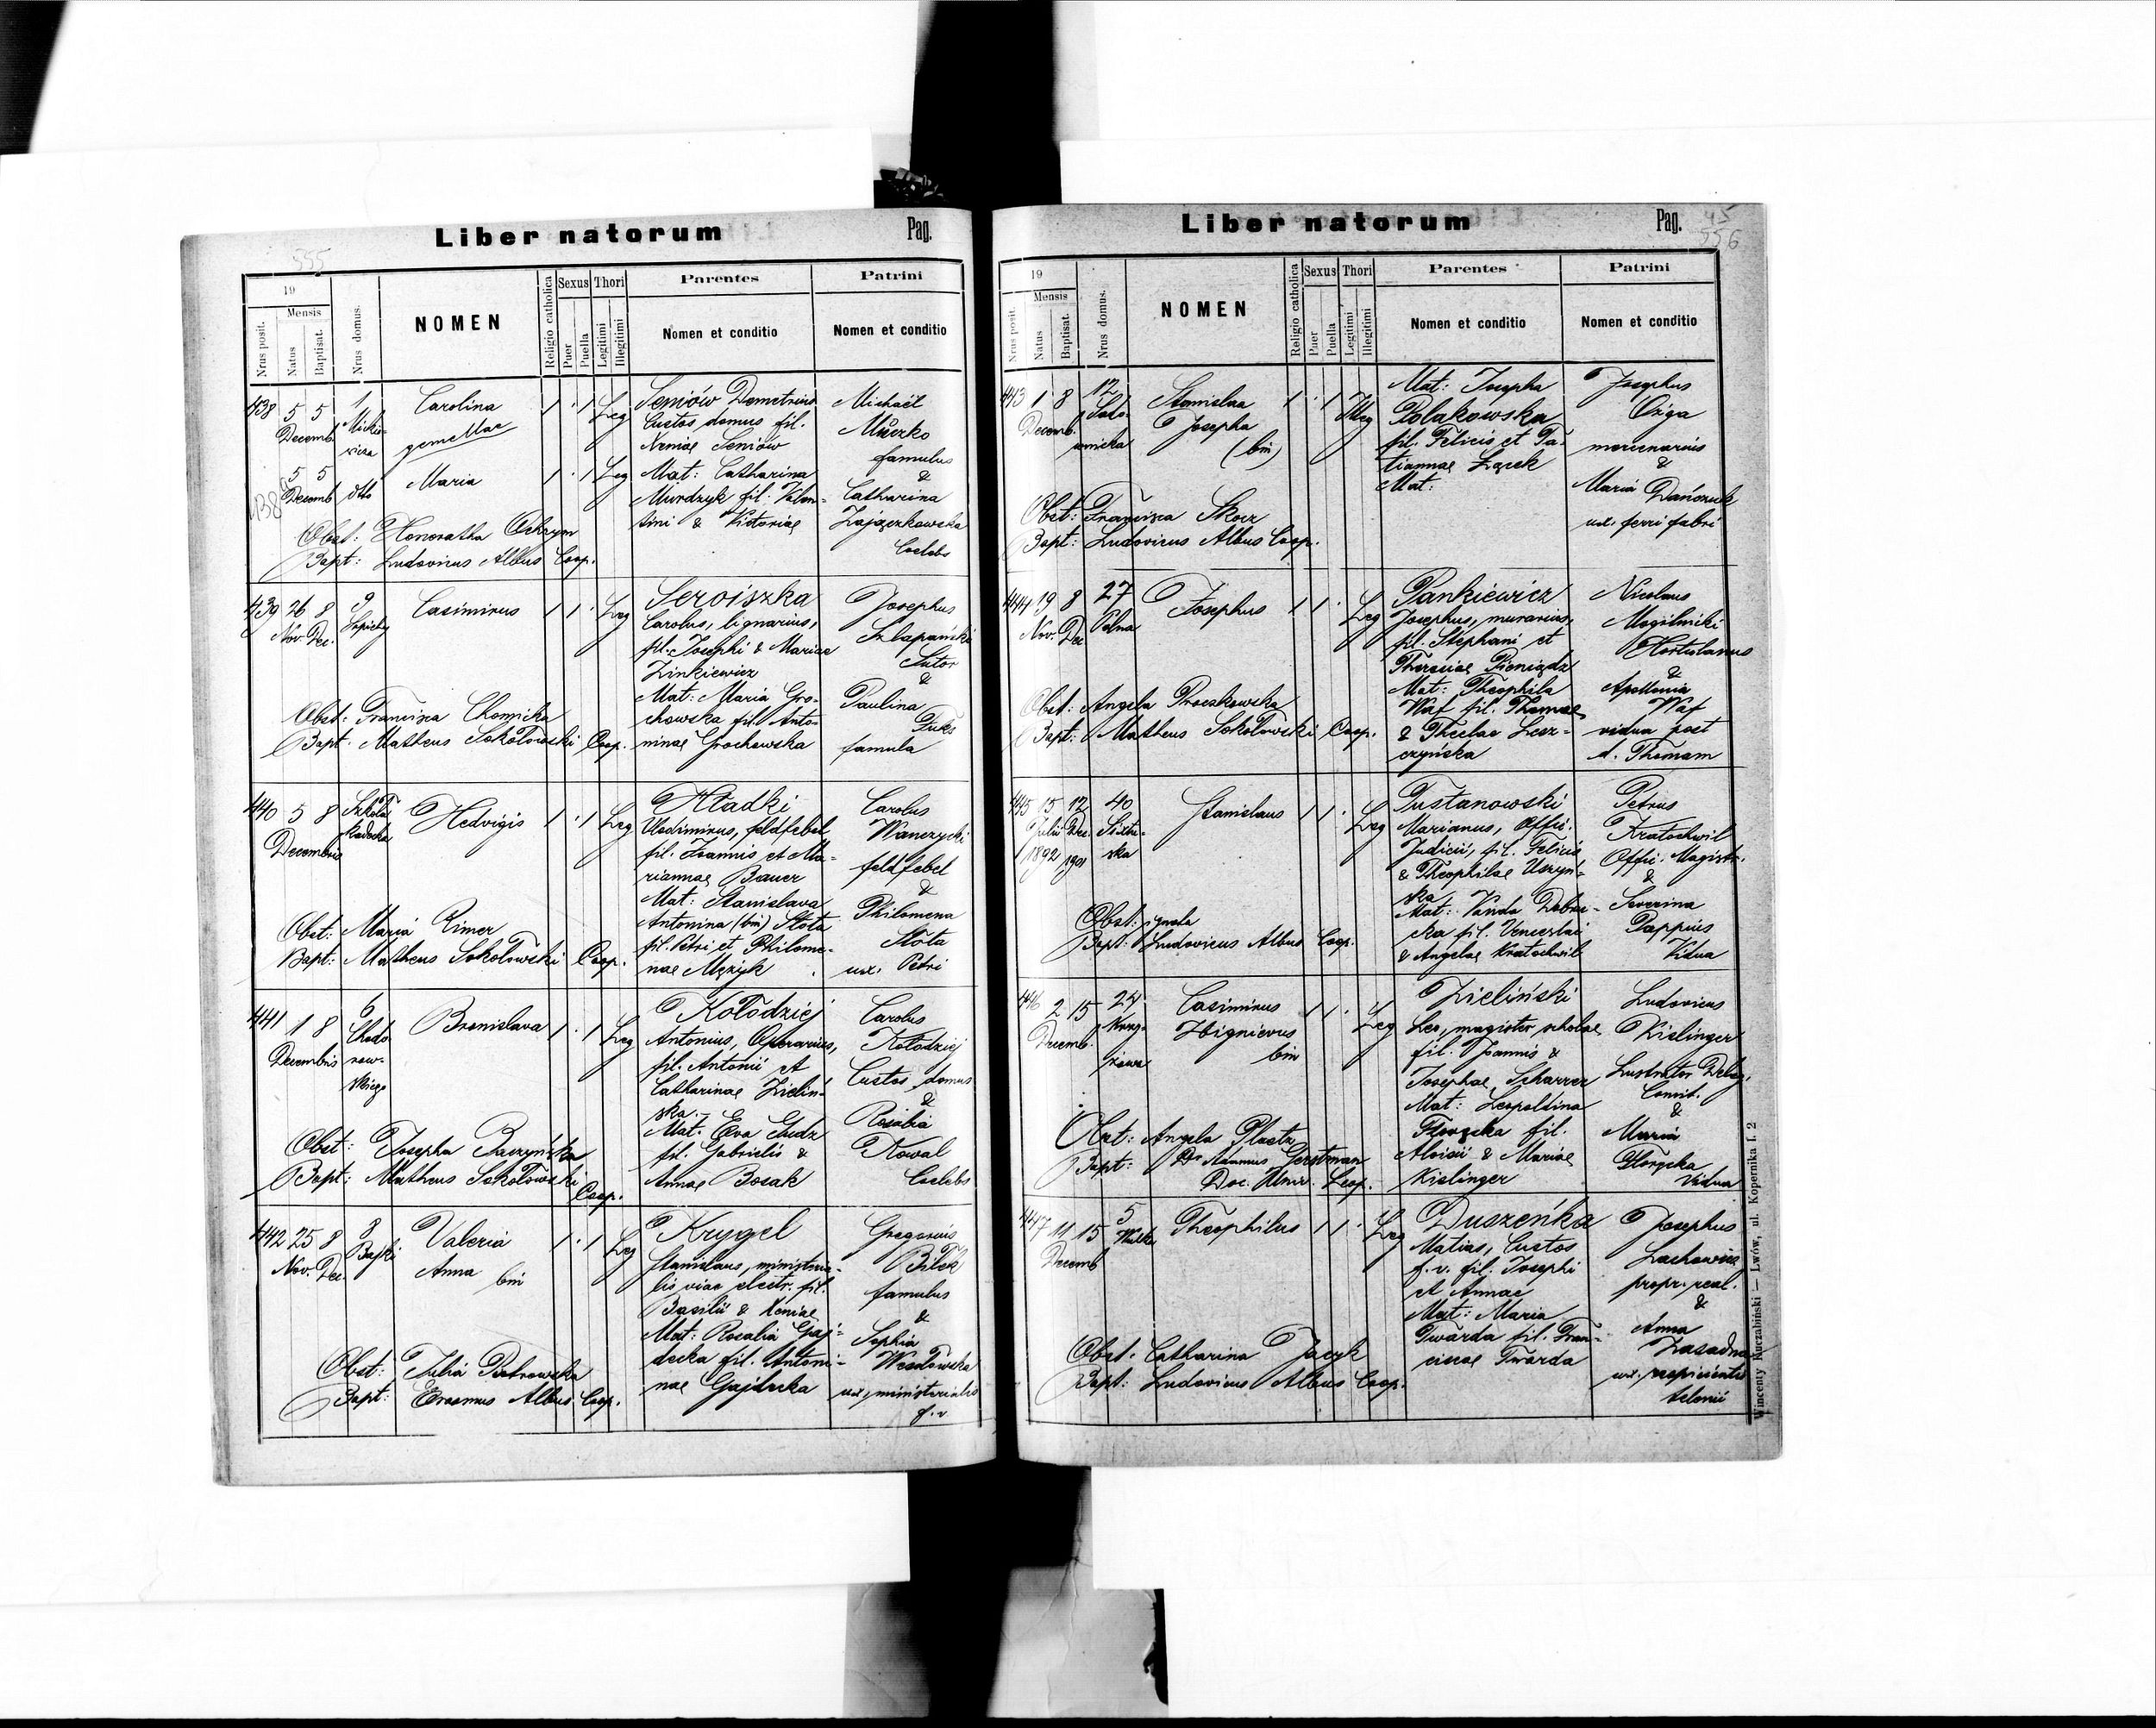 555
Liber natorum Pag.
19
Mensis
Nrus posit.
Natus
Baptisat.
Nrus domus.
NOMEN
Religio catholica
Sexus
Puer
Puella
Thori
Legitimi
Illegitimi
Parentes
Nomen et conditio
Patrini
Nomen et conditio
438 5 5 1 Carolina 1 · 1 Leg Seniów Demetrius Michaël
Decemb. Custos domus fil. Muczko
gemellae Seniów famulus
5 5 Maria 1 · 1 Leg Mat: Catharina &
Decemb dtto Murdzyk fil. Valen- Catharina
438 tini & Victoriae Zajączkowska
Obst: Honoratha Coelebs
Bapt: Ludovicus Albus Coop.
439 26 8 9 Casimirus 1 1 · Leg Seroiszka Josephus
Nov. Dec. Carolus, lignarius, Szlapański
fil. Josephi & Mariae Sutor
Zinkiewicz &
Mat: Maria Gro- Paulina
Obst: Francisca Chomicka chowska fil. Anto- Fuks
Bapt: Matheus Sokołowski Coop. ninae Grochowska famula
440 5 8 Szkoła Hedvigis 1 · 1 Leg Hładki Carolus
Decembris kadecka Vladimirus, feldfebel Wanczycki
fil. Joannis et Ma- feldfebel
riannae Bauer &
Mat: Stanislava Philomena
Obst: Maria Rimer Antonina (bin) Stota Stota
Bapt: Matheus Sokołowski Coop. fil. Petri et Philome- ux. Petri
nae Mężyk
441 1 8 6 Bronislava 1 · 1 Leg Kołodziej Carolus
Decembris Chodo Antonius, Operarius, Kołodziej
row- fil. Antonii et Custos domus
skiego Catharinae Zieliń- &
ska. Rosalia
Obst: Josepha Baczyńska Mat: Eva Chudz Kowal
Bapt: Matheus Sokołowski Coop. fil. Gabrielis & Coelebs
Annae Bosak
442 25 8 8 Valeria 1 · 1 Leg Krygel Gregorius
Nov. Dec Bajki Anna bin Stanislaus, ministeria- Bilek
lis viae electr. fil. famulus
Basilii & Xeniae &
Mat: Rosalia Gaj- Sophia
Obst: Julia Piotrowska decka fil. Antoni- Wesołowska
Bapt: Erasmus Albus Coop. nae Gajdecka ux. ministerialis
f. v
Liber natorum Pag. 45
556
19
Mensis
Nrus posit.
Natus
Baptisat.
Nrus domus.
NOMEN
Religio catholica
Sexus
Puer
Puella
Thori
Legitimi
Illegitimi
Parentes
Nomen et conditio
Patrini
Nomen et conditio
443 1 8 12 Stanislaa 1 · 1 Illeg Mat: Josepha Josephus
Decemb. Sado- Josepha Polakowska Ożga
wnicka (bin) fil. Felicis et Ta- mercenarius
tiannae Zącek &
Mat: Maria Dańczuk
Obst: Francisca Skocz ux. ferri fabri
Bapt: Ludovicus Albus Coop.
444 19 8 27 Josephus 1 1 · Leg Pankiewicz Nicolaus
Nov. Dec Polna Josephus, murarius, Mogilnicki
fil. Stephani et Hortulanus
Theresiae Pieniądz &
Obst: Angela Proczkowska Mat: Theophila Apollonia
Bapt: Matheus Sokołowski Coop. Waf fil. Thomae Waf
& Theclae Lesz- vidua post
czyńska d. Thomam
445 15 12 40 Stanislaus 1 1 · Leg Tustanowski Petrus
Julii Dec. Sixtu- Marianus, Offic. Kratochwil
1892 1901 ska Judicii, fil. Felicis Offic. Magistr.
& Theophilae Uszyń- &
ska Severina
Obst: ignota Mat: Vanda Dobrze- Pappius
Bapt: Ludovicus Albus Coop. cka fil. Venceslai Vidua
& Angelae Kratochwil
446 2 15 24 Casimirus 1 1 · Leg Zieliński Ludovicus
Decemb. Krzy- Zbignievus Leo, magister scholae Kislinger
żowa bin fil. Joannis & Lustrator Deleg.
Josephae Scharrer &
Mat: Leopoldina Maria
Obst: Angela fil. Vidua
Bapt: Dr Adamus Gerstman Aloisii & Mariae
Doc. Univ. Leop. Kislinger
447 11 15 5 Theophilus 1 1 · Leg Duszeńka Josephus
Decemb Matias, Custos Lachowicz
f. v. fil. Josephi propr. real.
et Annae &
Mat: Maria Anna
Obst: Catharina Jacyk Twarda fil. Fran- Zasadna
Bapt: Ludovicus Albus Coop. ciscae Twarda ux. respicientis
telonii
Wincenty Kuczabiński — Lwów, ul. Kopernika l. 2